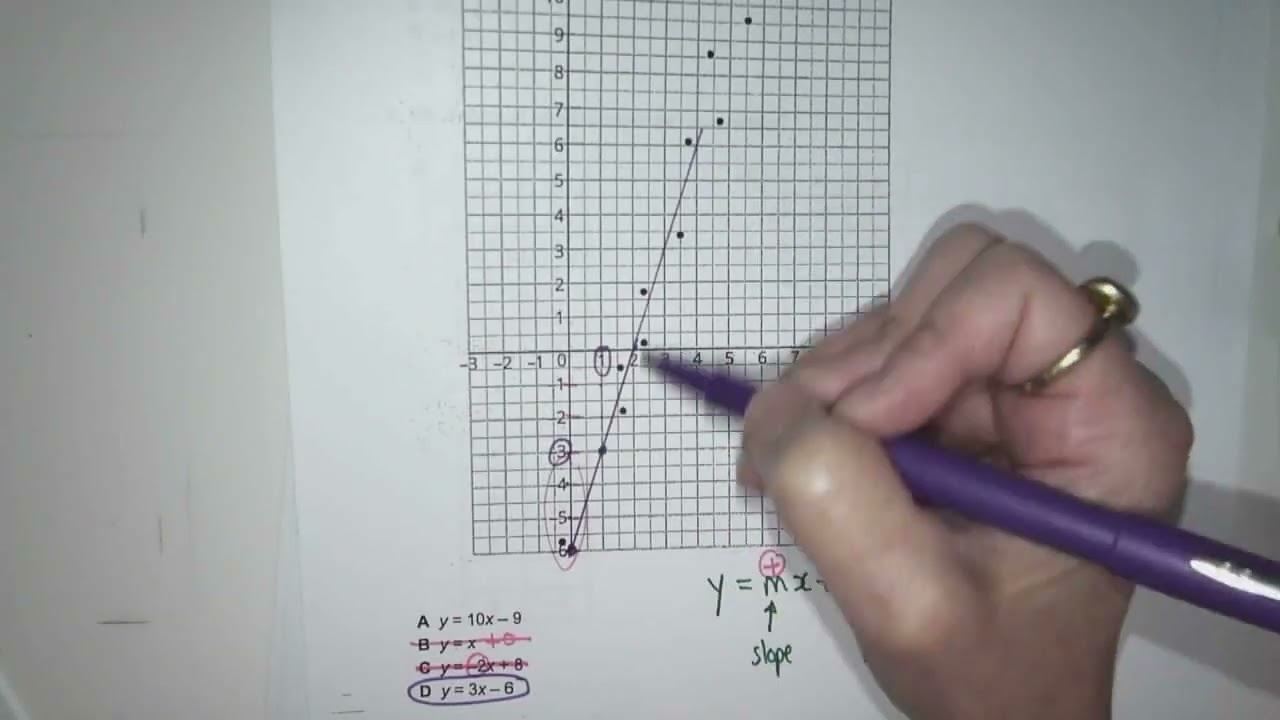 10
9
8
7
6
5
4
3
2
1
-3 -2 -1 0 1 2 3 4 5 6 7
1
2
-3
4
-5
6
y = mx
+
slope
A y = 10x – 9
B y = x + 0
C y = –2x + 8
D y = 3x – 6